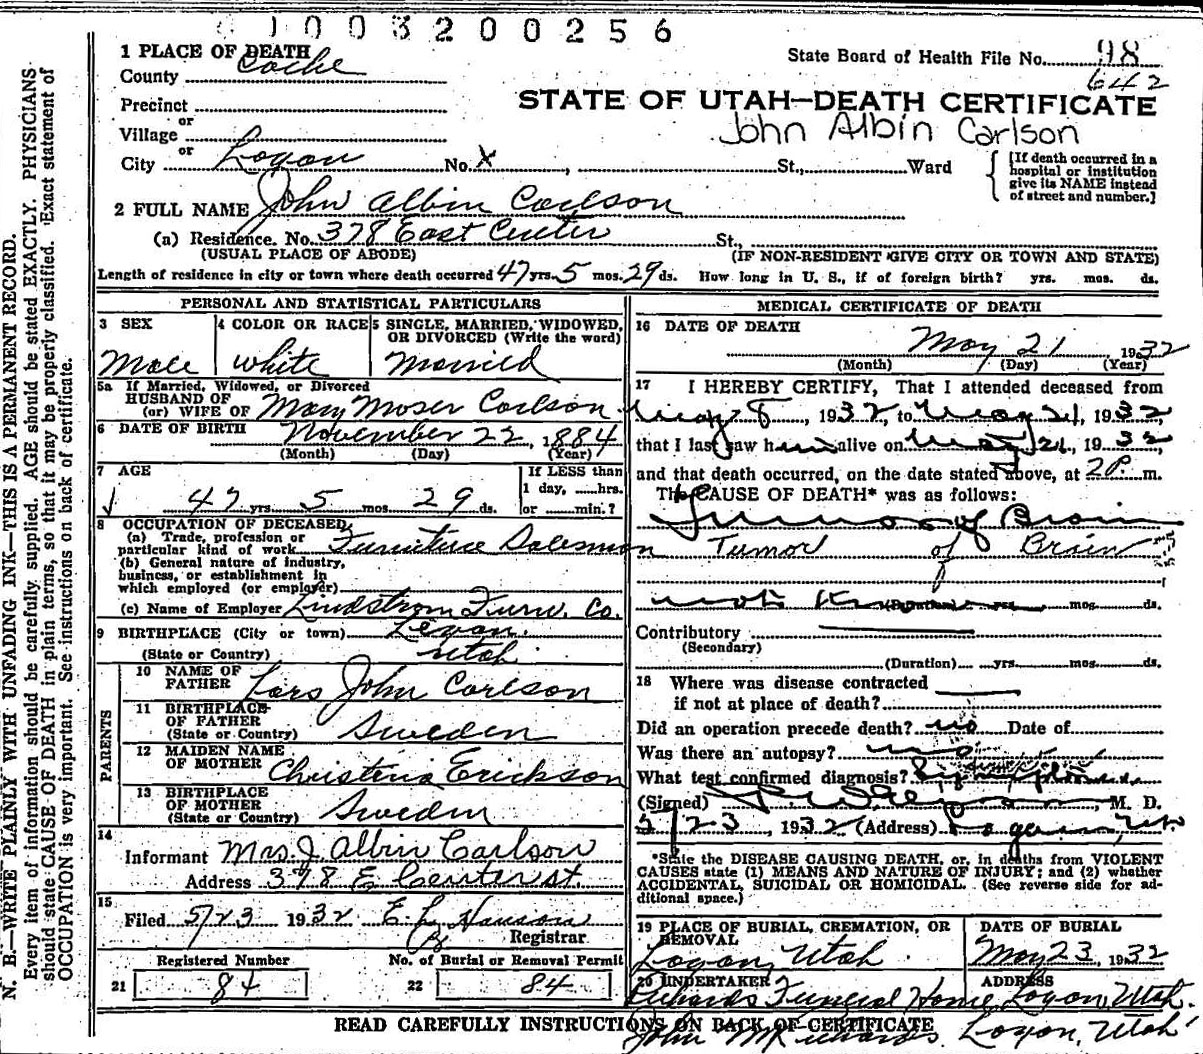 1003200256
1 PLACE OF DEATH
County Cache
State Board of Health File No. 98
642
Precinct
or
Village
or
STATE OF UTAH—DEATH CERTIFICATE
John Albin Carlson
City Logan No. X , St., Ward
[If death occurred in a hospital or institution give its NAME instead of street and number.]
2 FULL NAME John Albin Carlson
(a) Residence. No. 378 East Center St.,
(USUAL PLACE OF ABODE) (IF NON-RESIDENT GIVE CITY OR TOWN AND STATE)
Length of residence in city or town where death occurred 47 yrs. 5 mos. 29 ds. How long in U. S., if of foreign birth? yrs. mos. ds.
PERSONAL AND STATISTICAL PARTICULARS
3 SEX 4 COLOR OR RACE 5 SINGLE, MARRIED, WIDOWED, OR DIVORCED (Write the word)
Male white Married
5a If Married, Widowed, or Divorced
HUSBAND OF
(or) WIFE OF Mary Moser Carlson
6 DATE OF BIRTH November 22, 1884
(Month) (Day) (Year)
7 AGE If LESS than
1 day, hrs.
47 yrs 5 mos 29 ds. or min.?
8 OCCUPATION OF DECEASED
(a) Trade, profession or
particular kind of work Furniture Salesman
(b) General nature of industry,
business, or establishment in
which employed (or employer)
(c) Name of Employer Lindstrom Furn. Co.
9 BIRTHPLACE (City or town) Levan
(State or Country) Utah
PARENTS
10 NAME OF
FATHER Lars John Carlson
11 BIRTHPLACE
OF FATHER
(State or Country) Sweden
12 MAIDEN NAME
OF MOTHER Christena Erickson
13 BIRTHPLACE
OF MOTHER
(State or Country) Sweden
14
Informant Mrs. J. Albin Carlson
Address 378 E Center st.
15
Filed 5/23 1932 E. L. Hanson
Registrar
Registered Number No. of Burial or Removal Permit
21 84 22 84
MEDICAL CERTIFICATE OF DEATH
16 DATE OF DEATH
May 21 1932
(Month) (Day) (Year)
17 I HEREBY CERTIFY, That I attended deceased from
May 8, 1932, to May 21, 1932
that I last saw him alive on May 21, 1932,
and that death occurred, on the date stated above, at 2 P m.
The CAUSE OF DEATH* was as follows:
Tumor of Brain
Tumor of Brain
not known (Duration) yrs mos. ds.
Contributory
(Secondary)
(Duration) yrs. mos. ds.
18 Where was disease contracted
if not at place of death?
Did an operation precede death? no Date of
Was there an autopsy? no
What test confirmed diagnosis?
(Signed) M. D.
5/23, 1932 (Address) Logan, Ut
*State the DISEASE CAUSING DEATH, or, in deaths from VIOLENT
CAUSES state (1) MEANS AND NATURE OF INJURY; and (2) whether
ACCIDENTAL, SUICIDAL OR HOMICIDAL. (See reverse side for ad-
ditional space.)
19 PLACE OF BURIAL, CREMATION, OR REMOVAL DATE OF BURIAL
Logan, Utah May 23, 1932
20 UNDERTAKER ADDRESS
Richards Funeral Home, Logan, Utah.
John M Richards Logan, Utah
READ CAREFULLY INSTRUCTIONS ON BACK OF CERTIFICATE
N. B.—WRITE PLAINLY WITH UNFADING INK—THIS IS A PERMANENT RECORD.
Every item of information should be carefully supplied. AGE should be stated EXACTLY. PHYSICIANS
should state CAUSE OF DEATH in plain terms, so that it may be properly classified. Exact statement of
OCCUPATION is very important. See instructions on back of certificate.